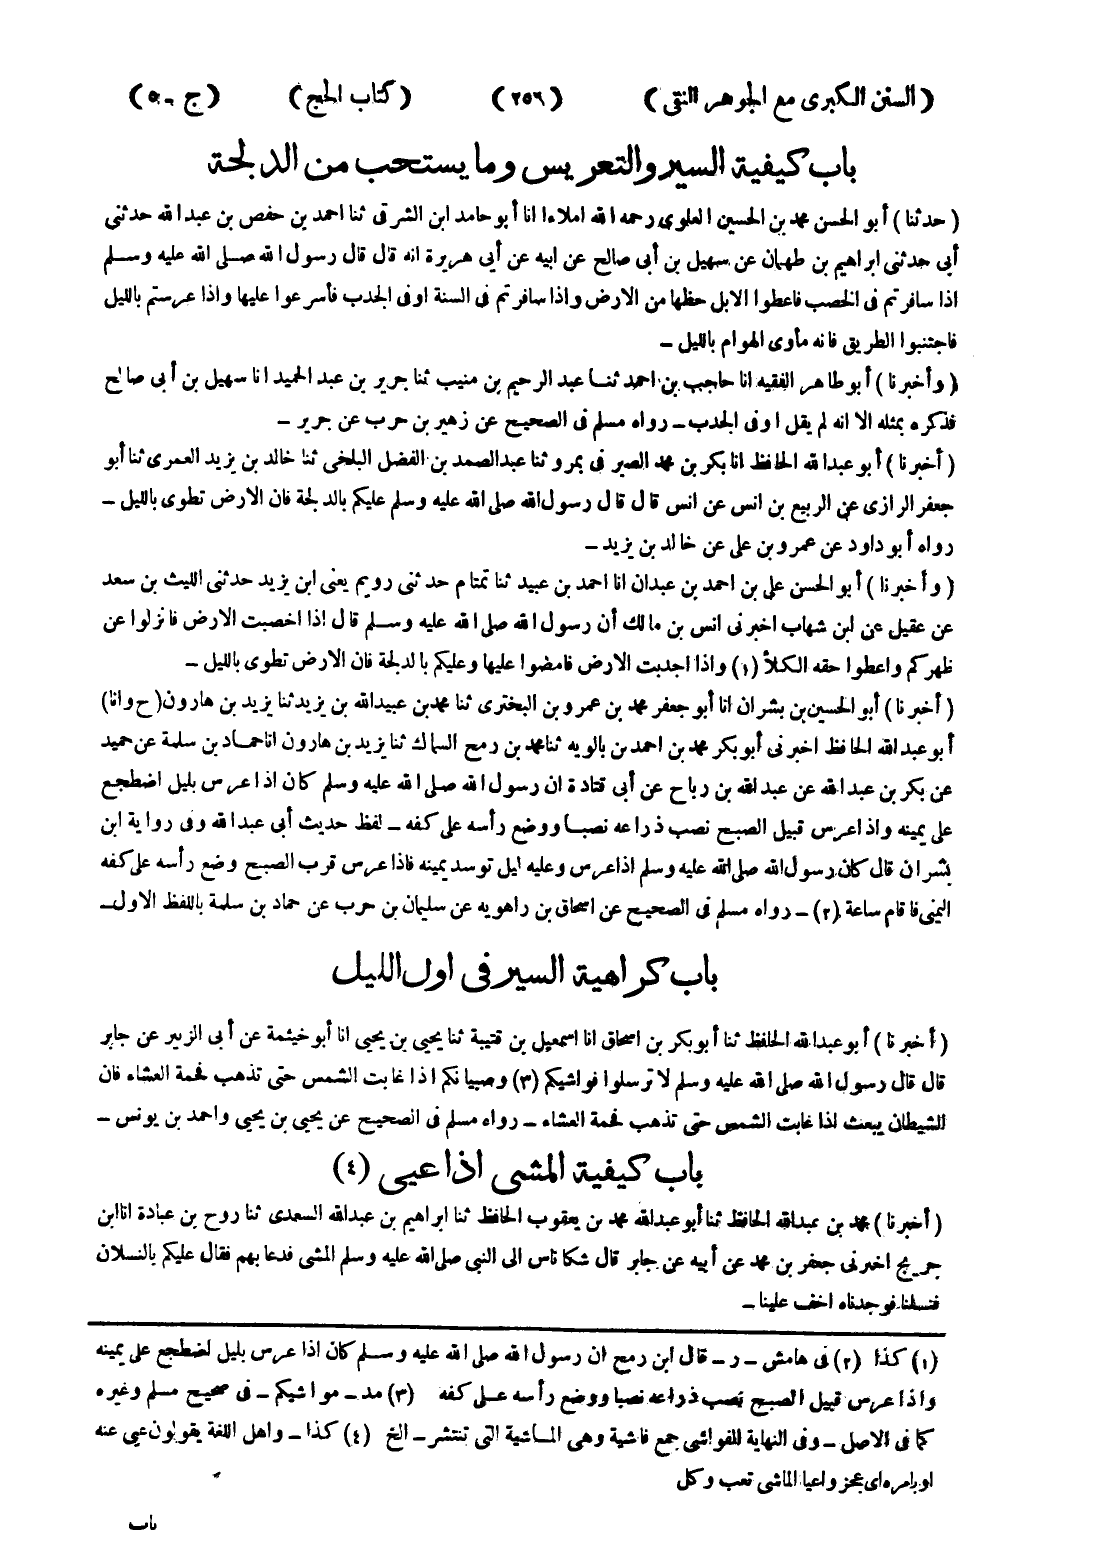 ( السنن الكبرى مع الجوهر النقى ) ( ٢٥٦ ) ( كتاب الحج ) ( ج - ٥ )
باب كيفية السير والتعريس وما يستحب من الدلجة
( حدثنا ) أبو الحسن محمد بن الحسين العلوى رحمه الله املاءا انا أبو حامد ابن الشرقى ثنا احمد بن حفص بن عبد الله حدثنى
أبى حدثنى ابراهيم بن طهمان عن سهيل بن أبى صالح عن ابيه عن أبى هريرة انه قال قال رسول الله صلى الله عليه وسلم
اذا سافرتم فى الخصب فاعطوا الابل حظها من الارض واذا سافرتم فى السنة اوفى الجدب فأسرعوا عليها واذا عرستم بالليل
فاجتنبوا الطريق فانه مأوى الهوام بالليل –
( وأخبرنا ) أبو طاهر الفقيه انا حاجب بن احمد ثنا عبد الرحيم بن منيب ثنا جرير بن عبد الحميد انا سهيل بن أبى صالح
فذكره بمثله الا انه لم يقل اوفى الجدب – رواه مسلم فى الصحيح عن زهير بن حرب عن جرير –
( أخبرنا ) أبو عبد الله الحافظ انا بكر بن محمد الصير فى بمرو ثنا عبد الصمد بن الفضل البلخى ثنا خالد بن يزيد العمرى ثنا أبو
جعفر الرازى عن الربيع بن انس عن انس قال قال رسول الله صلى الله عليه وسلم عليكم بالدلجة فان الارض تطوى بالليل –
رواه أبو داود عن عمرو بن على عن خالد بن يزيد –
( وأخبرنا ) أبو الحسن على بن احمد بن عبدان انا احمد بن عبيد ثنا تمتام حدثنى رويم يعنى ابن يزيد حدثنى الليث بن سعد
عن عقيل عن ابن شهاب اخبرنى انس بن مالك أن رسول الله صلى الله عليه وسلم قال اذا اخصبت الارض فانزلوا عن
ظهركم واعطوا حقه الكلأ (١) واذا اجدبت الارض فامضوا عليها وعليكم بالدلجة فان الارض تطوى بالليل –
( أخبرنا ) أبو الحسين بن بشران انا أبو جعفر محمد بن عمرو بن البخترى ثنا محمد بن عبيد الله بن يزيد ثنا يزيد بن هارون (ح وانا)
أبو عبد الله الحافظ اخبرنى أبو بكر محمد بن احمد بن بالويه ثنا محمد بن رمح السماك ثنا يزيد بن هارون انا حماد بن سلمة عن حميد
عن بكر بن عبد الله عن عبد الله بن رباح عن أبى قتادة ان رسول الله صلى الله عليه وسلم كان اذا عرس بليل اضطجع
على يمينه واذا عرس قبيل الصبح نصب ذراعه نصبا ووضع رأسه على كفه – لفظ حديث أبى عبد الله وفى رواية ابن
بشران قال كان رسول الله صلى الله عليه وسلم اذا عرس وعليه ليل توسد يمينه فاذا عرس قرب الصبح وضع رأسه على كفه
اليمنى فاقام ساعة (٢) – رواه مسلم فى الصحيح عن اسحاق بن راهويه عن سليمان بن حرب عن حماد بن سلمة باللفظ الاول –
باب كراهية السير فى اول الليل
( أخبرنا ) أبو عبد الله الحافظ ثنا أبو بكر بن اسحاق انا اسمعيل بن قتيبة ثنا يحيى بن يحيى انا أبو خيثمة عن أبى الزبير عن جابر
قال قال رسول الله صلى الله عليه وسلم لا ترسلوا فواشيكم (٣) وصبيانكم اذا غابت الشمس حتى تذهب فحمة العشاء فان
الشيطان يبعث اذا غابت الشمس حتى تذهب فحمة العشاء – رواه مسلم فى الصحيح عن يحيى بن يحيى واحمد بن يونس –
باب كيفية المشى اذا عيى (٤)
( أخبرنا ) محمد بن عبد الله الحافظ ثنا أبو عبد الله محمد بن يعقوب الحافظ ثنا ابراهيم بن عبد الله السعدى ثنا روح بن عبادة انا ابن
جريج اخبرنى جعفر بن محمد عن أبيه عن جابر قال شكا ناس الى النبى صلى الله عليه وسلم المشى فدعا بهم فقال عليكم بالنسلان
فنسلنا فوجدناه اخف علينا –
(١) كذا (٢) فى هامش – ر – قال ابن رمح ان رسول الله صلى الله عليه وسلم كان اذا عرس بليل اضطجع على يمينه
واذا عرس قبيل الصبح نصب ذراعه نصبا ووضع رأسه على كفه (٣) مد – مواشيكم – فى صحيح مسلم وغيره
كما فى الاصل – وفى النهاية الفواشى جمع فاشية وهى الماشية التى تنتشر – الخ (٤) كذا – واهل اللغة يقولون عيى عنه
او بامره اى عجز واعيا الماشى تعب وكل
باب